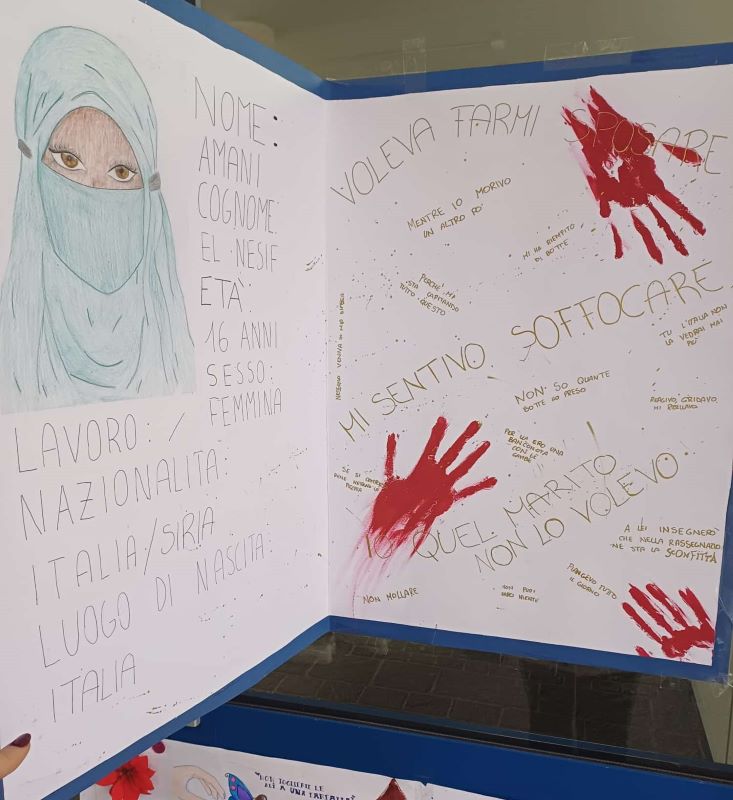 NOME:
AMANI
COGNOME:
EL NESIF
ETÀ:
16 ANNI
SESSO:
FEMMINA
LAVORO: /
NAZIONALITÀ:
ITALIA/SIRIA
LUOGO DI NASCITA:
ITALIA
VOLEVA FARMI SPOSARE
MENTRE IO MORIVO
UN ALTRO PO'
MI HA RIEMPITO
DI BOTTE
PERCHÉ MI
STA CAPITANDO
TUTTO QUESTO
MI SENTIVO SOFFOCARE
TU L'ITALIA NON
LA VEDRAI MAI
PIÙ
NON SO QUANTE
BOTTE HO PRESO
REAGIVO, GRIDAVO,
MI RIBELLAVO
PER LUI ERO UNA
BANCONOTA
CON LE
GAMBE
SE SI
IO QUEL MARITO
NON LO VOLEVO
A LEI INSEGNERÒ
CHE NELLA RASSEGNAZIO
NE STA LA SCONFITTA
PIANGEVO TUTTO
IL GIORNO
NON MOLLARE
NON PUOI
FARCI NIENTE
"NON TOGLIETE LE
ALI A UNA FARFALLA"